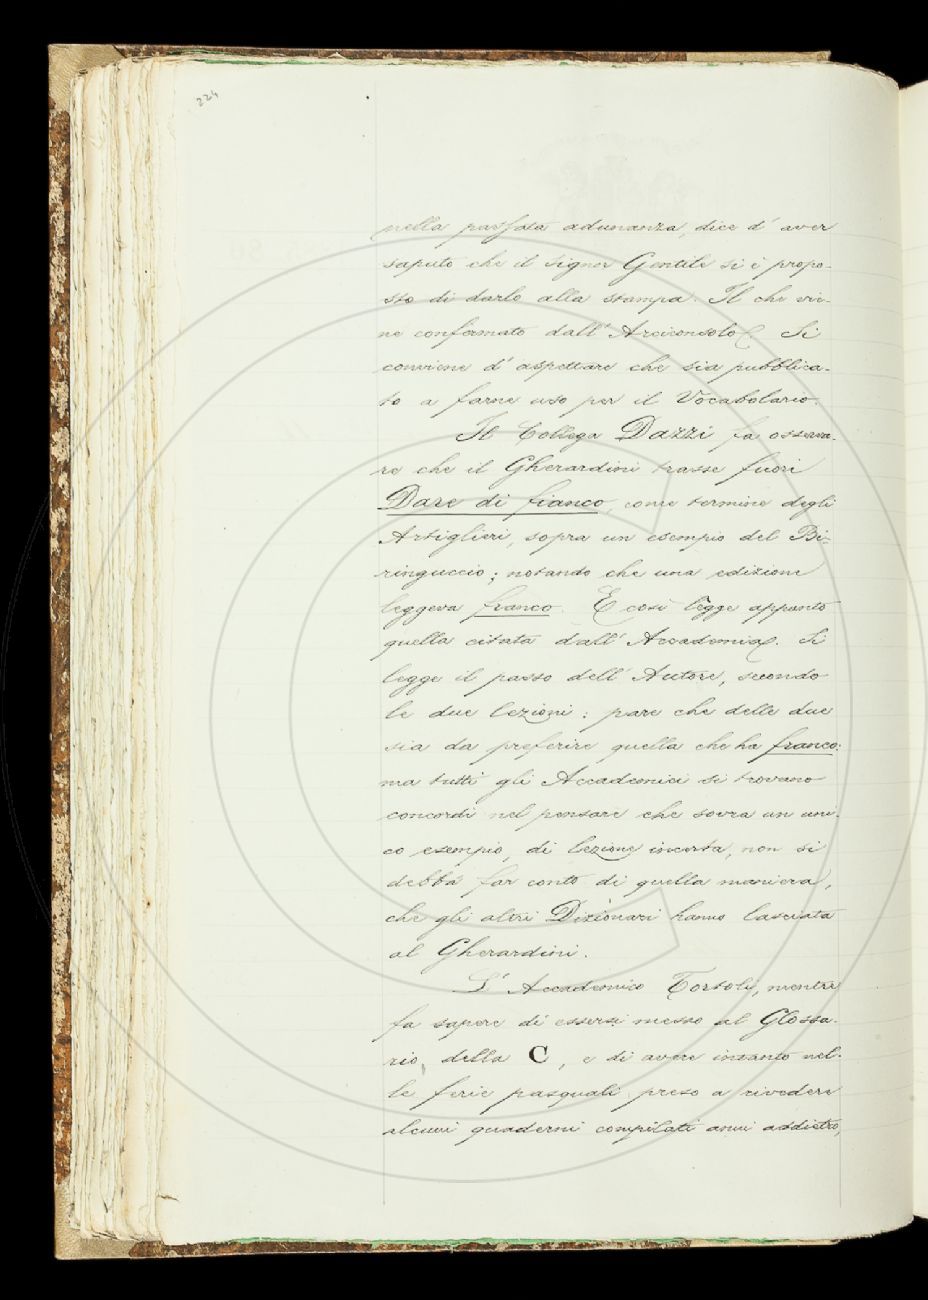 224
nella passata adunanza, dice d'aver
saputo che il signor Gentile si è propo-
sto di darlo alla stampa. Il che vie-
ne confermato dall'Arciconsolo. Si
conviene d'aspettare che sia pubblica-
to a farne uso per il Vocabolario.
Il Collega Dazzi fa osserva-
re che il Gherardini trasse fuori
Dare di fianco, come termine degli
Artiglieri, sopra un esempio del Bi-
ringuccio; notando che una edizione
leggeva franco. E così legge appunto
quella citata dall'Accademia. Si
legge il passo dell'Autore, secondo
le due lezioni: pare che delle due
sia da preferire quella che ha franco:
ma tutti gli Accademici si trovano
concordi nel pensare che sovra un uni-
co esempio, di lezione incerta, non si
debba far conto di quella maniera,
che gli altri Dizionari hanno lasciata
al Gherardini.
L'Accademico Tortoli, mentre
fa sapere di essersi messo al Glossa-
rio, della C, e di avere intanto nel-
le ferie pasquali preso a rivedere
alcuni quaderni compilati anni addietro,